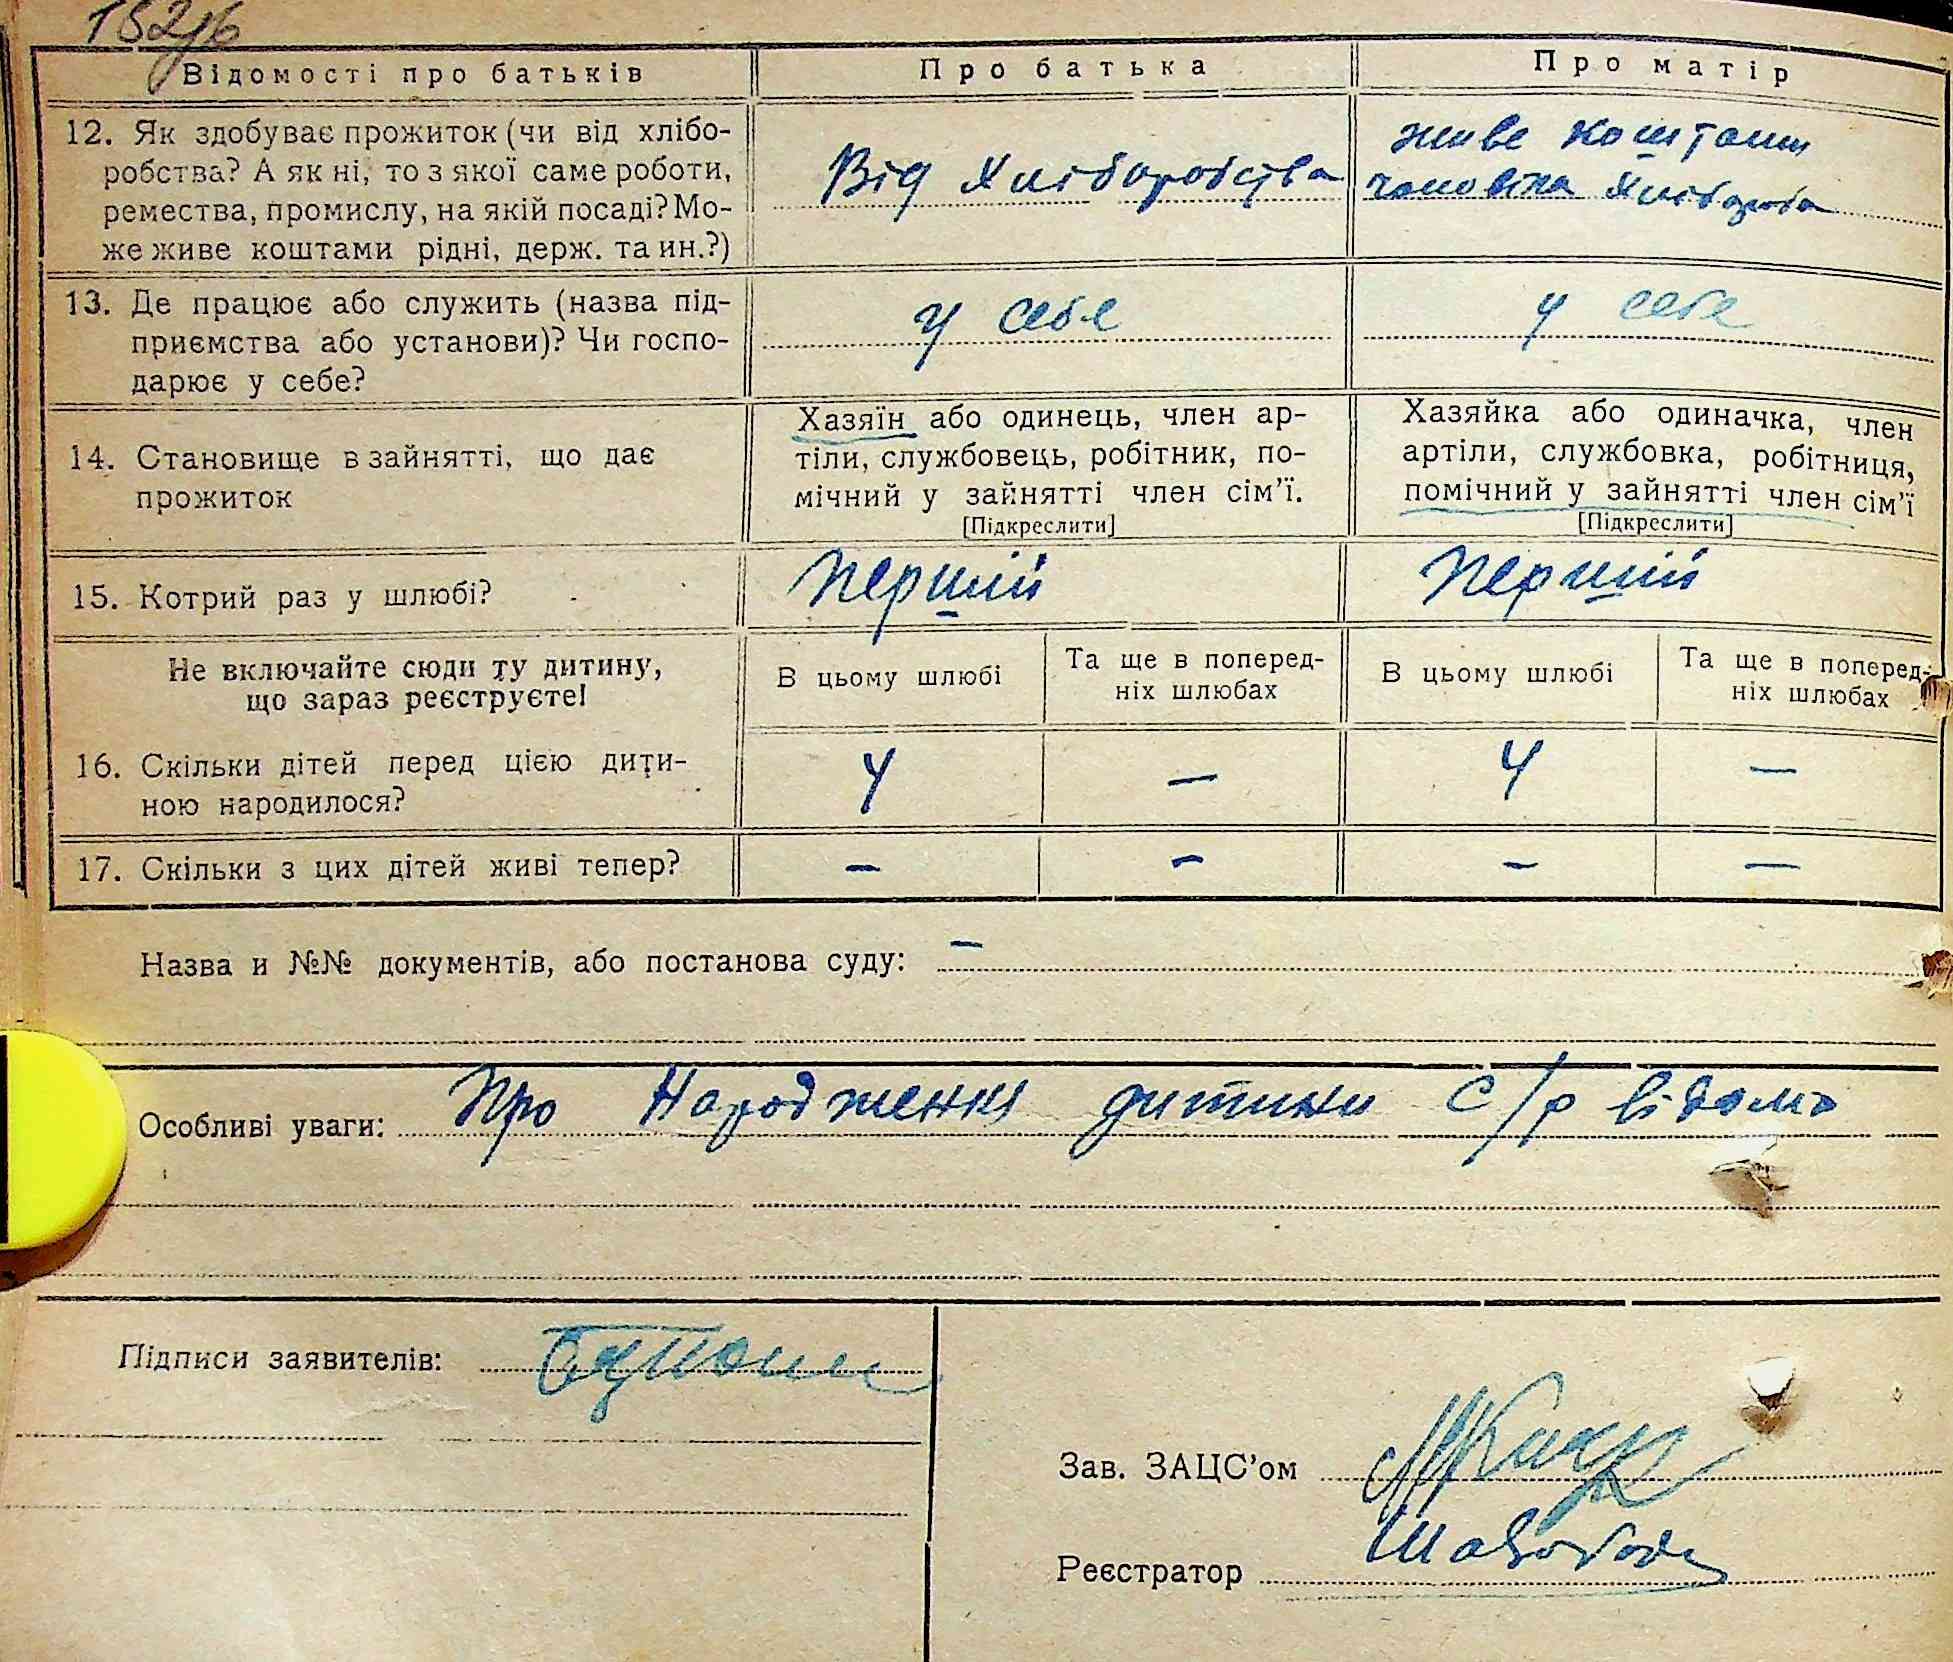 Відомості про батьків Про батька Про матір
12. Як здобуває прожиток (чи від хлібо-
робства? А як ні, то з якої саме роботи,
ремества, промислу, на якій посаді? Мо-
же живе коштами рідні, держ. та ин.?)
Від Хліборобства
живе коштами
чоловіка Хлібороба
13. Де працює або служить (назва під-
приємства або установи)? Чи госпо-
дарює у себе?
у себе
у себе
14. Становище в зайнятті, що дає
прожиток
Хазяїн або одинець, член ар-
тіли, службовець, робітник, по-
мічний у зайнятті член сім’ї.
[Підкреслити]
Хазяйка або одиначка, член
артіли, службовка, робітниця,
помічний у зайнятті член сім’ї
[Підкреслити]
15. Котрий раз у шлюбі? Перший Перший
Не включайте сюди ту дитину,
що зараз реєструєте!
В цьому шлюбі
Та ще в поперед-
ніх шлюбах
В цьому шлюбі
Та ще в поперед-
ніх шлюбах
16. Скільки дітей перед цією дити-
ною народилося?
4 — 4 —
17. Скільки з цих дітей живі тепер? — — — —
Назва и №№ документів, або постанова суду: —
Особливі уваги: Про Народження дитини с/р відомо
Підписи заявителів:
Зав. ЗАЦС’ом
Реєстратор